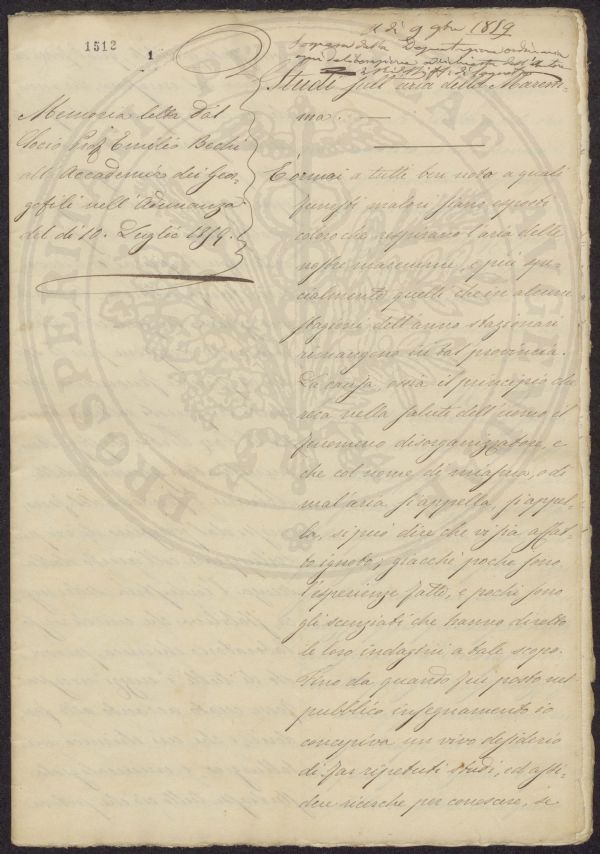 1512
1
A dì 9 9bre 1859
Sospesa dalla Deputazione ordinaria
ogni deliberazione
Studi sull'aria della Marem-
ma. —
Memoria letta dal
Socio Prof Emilio Bechi
alla Accademia dei Geo-
gofili nell'Adunanza
del dì 10. Luglio 1859.
È ormai a tutti ben noto a quali
funesti malori siano esposti
coloro che respirano l'aria delle
nostre maremme, e più spe-
cialmente quelli che in alcune
stagioni dell'anno stazionari
rimangono in tal provincia.
La causa, ossia il principio che
reca nella salute dell'uomo il
fenomeno disorganizzatore, e
che col nome di miasma, o di
mal'aria s'appella, s'appel-
la, si può dire che vi sia affat-
to ignoto; giacchè poche sono
l'esperienze fatte, e pochi sono
gli scenziati che hanno diretto
le loro indagini a tale scopo.
Fino da quando fui posto nel
pubblico insegnamento io
concepiva un vivo desiderio
di far ripetuti studi, ed assi-
due ricerche per conoscere, se
PROSPERI